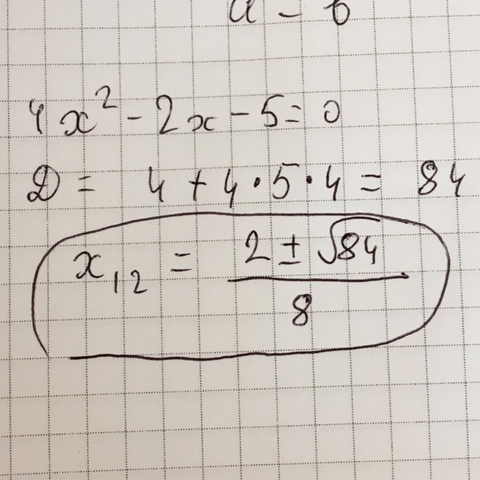 a - b
4x² - 2x - 5 = 0
D = 4 + 4·5·4 = 84
x₁₂ = (2 ± √84) / 8